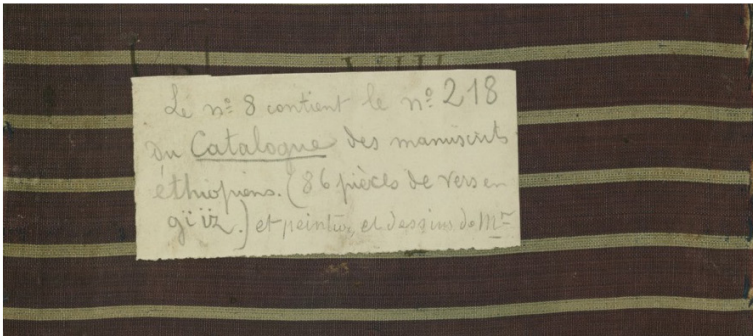 VIII
Le nº 8 contient le nº 218
du Catalogue des manuscrits
éthiopiens. (86 pièces de vers en
gïïz.) et peinture, et dessins de Mr